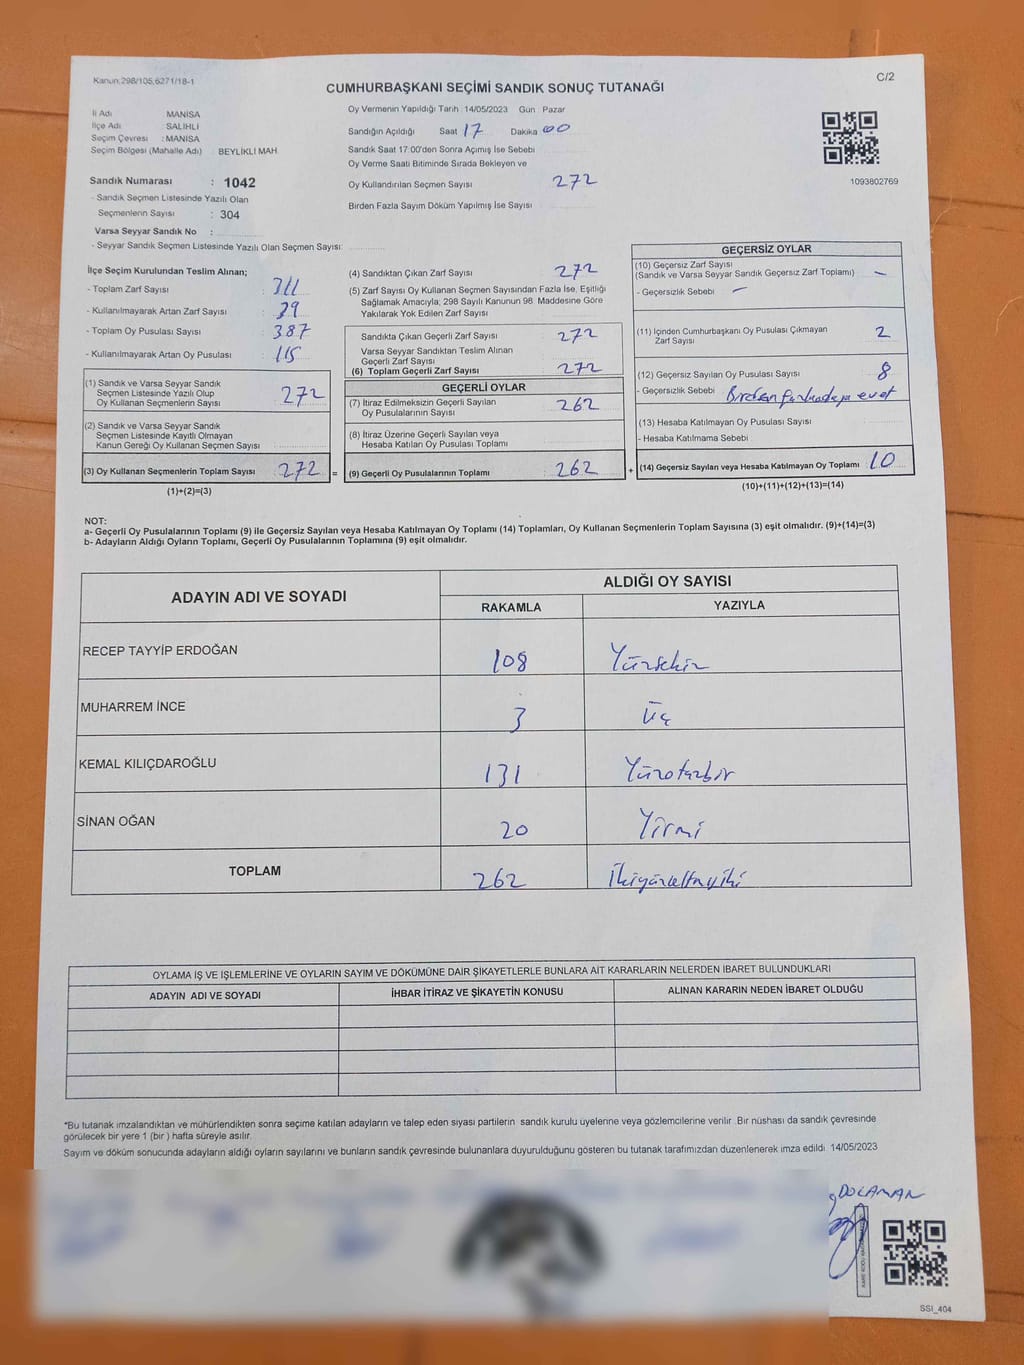 Kanun:298/105,6271/18-1
C/2
CUMHURBAŞKANI SEÇİMİ SANDIK SONUÇ TUTANAĞI
İl Adı MANİSA
İlçe Adı SALİHLİ
Seçim Çevresi : MANİSA
Seçim Bölgesi (Mahalle Adı) BEYLİKLİ MAH.
Oy Vermenin Yapıldığı Tarih :14/05/2023 Gün : Pazar
Sandığın Açıldığı Saat 17 Dakika 00
Sandık Saat 17:00'den Sonra Açımış İse Sebebi
Oy Verme Saati Bitiminde Sırada Bekleyen ve
Oy Kullandırılan Seçmen Sayısı 272
Birden Fazla Sayım Döküm Yapılmış İse Sayısı
1093802769
Sandık Numarası : 1042
- Sandık Seçmen Listesinde Yazılı Olan
Seçmenlerin Sayısı : 304
Varsa Seyyar Sandık No :
- Seyyar Sandık Seçmen Listesinde Yazılı Olan Seçmen Sayısı:
İlçe Seçim Kurulundan Teslim Alınan;
- Toplam Zarf Sayısı : 311
- Kullanılmayarak Artan Zarf Sayısı : 39
- Toplam Oy Pusulası Sayısı : 387
- Kullanılmayarak Artan Oy Pusulası : 115
(1) Sandık ve Varsa Seyyar Sandık
Seçmen Listesinde Yazılı Olup
Oy Kullanan Seçmenlerin Sayısı 272
(2) Sandık ve Varsa Seyyar Sandık
Seçmen Listesinde Kayıtlı Olmayan
Kanun Gereği Oy Kullanan Seçmen Sayısı
(3) Oy Kullanan Seçmenlerin Toplam Sayısı 272 =
(1)+(2)=(3)
(4) Sandıktan Çıkan Zarf Sayısı 272
(5) Zarf Sayısı Oy Kullanan Seçmen Sayısından Fazla İse, Eşitliği
Sağlamak Amacıyla; 298 Sayılı Kanunun 98. Maddesine Göre
Yakılarak Yok Edilen Zarf Sayısı
Sandıkta Çıkan Geçerli Zarf Sayısı 272
Varsa Seyyar Sandıktan Teslim Alınan
Geçerli Zarf Sayısı
(6) Toplam Geçerli Zarf Sayısı 272
GEÇERLİ OYLAR
(7) İtiraz Edilmeksizin Geçerli Sayılan
Oy Pusulalarının Sayısı 262
(8) İtiraz Üzerine Geçerli Sayılan veya
Hesaba Katılan Oy Pusulası Toplamı
(9) Geçerli Oy Pusulalarının Toplamı 262 +
GEÇERSİZ OYLAR
(10) Geçersiz Zarf Sayısı
(Sandık ve Varsa Seyyar Sandık Geçersiz Zarf Toplamı) -
- Geçersizlik Sebebi : -
(11) İçinden Cumhurbaşkanı Oy Pusulası Çıkmayan
Zarf Sayısı 2
(12) Geçersiz Sayılan Oy Pusulası Sayısı : 8
- Geçersizlik Sebebi : Birden evet
(13) Hesaba Katılmayan Oy Pusulası Sayısı
- Hesaba Katılmama Sebebi
(14) Geçersiz Sayılan veya Hesaba Katılmayan Oy Toplamı : 10
(10)+(11)+(12)+(13)=(14)
NOT:
a- Geçerli Oy Pusulalarının Toplamı (9) ile Geçersiz Sayılan veya Hesaba Katılmayan Oy Toplamı (14) Toplamları, Oy Kullanan Seçmenlerin Toplam Sayısına (3) eşit olmalıdır. (9)+(14)=(3)
b- Adayların Aldığı Oyların Toplamı, Geçerli Oy Pusulalarının Toplamına (9) eşit olmalıdır.
ADAYIN ADI VE SOYADI
ALDIĞI OY SAYISI
RAKAMLA YAZIYLA
RECEP TAYYİP ERDOĞAN 108 Yüzsekiz
MUHARREM İNCE 3 Üç
KEMAL KILIÇDAROĞLU 131 Yüzotuzbir
SİNAN OĞAN 20 Yirmi
TOPLAM 262 İkiyüzaltmışiki
OYLAMA İŞ VE İŞLEMLERİNE VE OYLARIN SAYIM VE DÖKÜMÜNE DAİR ŞİKAYETLERLE BUNLARA AİT KARARLARIN NELERDEN İBARET BULUNDUKLARI
ADAYIN ADI VE SOYADI İHBAR İTİRAZ VE ŞİKAYETİN KONUSU ALINAN KARARIN NEDEN İBARET OLDUĞU
*Bu tutanak imzalandıktan ve mühürlendikten sonra seçime katılan adayların ve talep eden siyasi partilerin sandık kurulu üyelerine veya gözlemcilerine verilir. Bir nüshası da sandık çevresinde
görülecek bir yere 1 (bir ) hafta süreyle asılır.
Sayım ve döküm sonucunda adayların aldığı oyların sayılarını ve bunların sandık çevresinde bulunanlara duyurulduğunu gösteren bu tutanak tarafımızdan düzenlenerek imza edildi. 14/05/2023
DOLAMAN
SSI_404